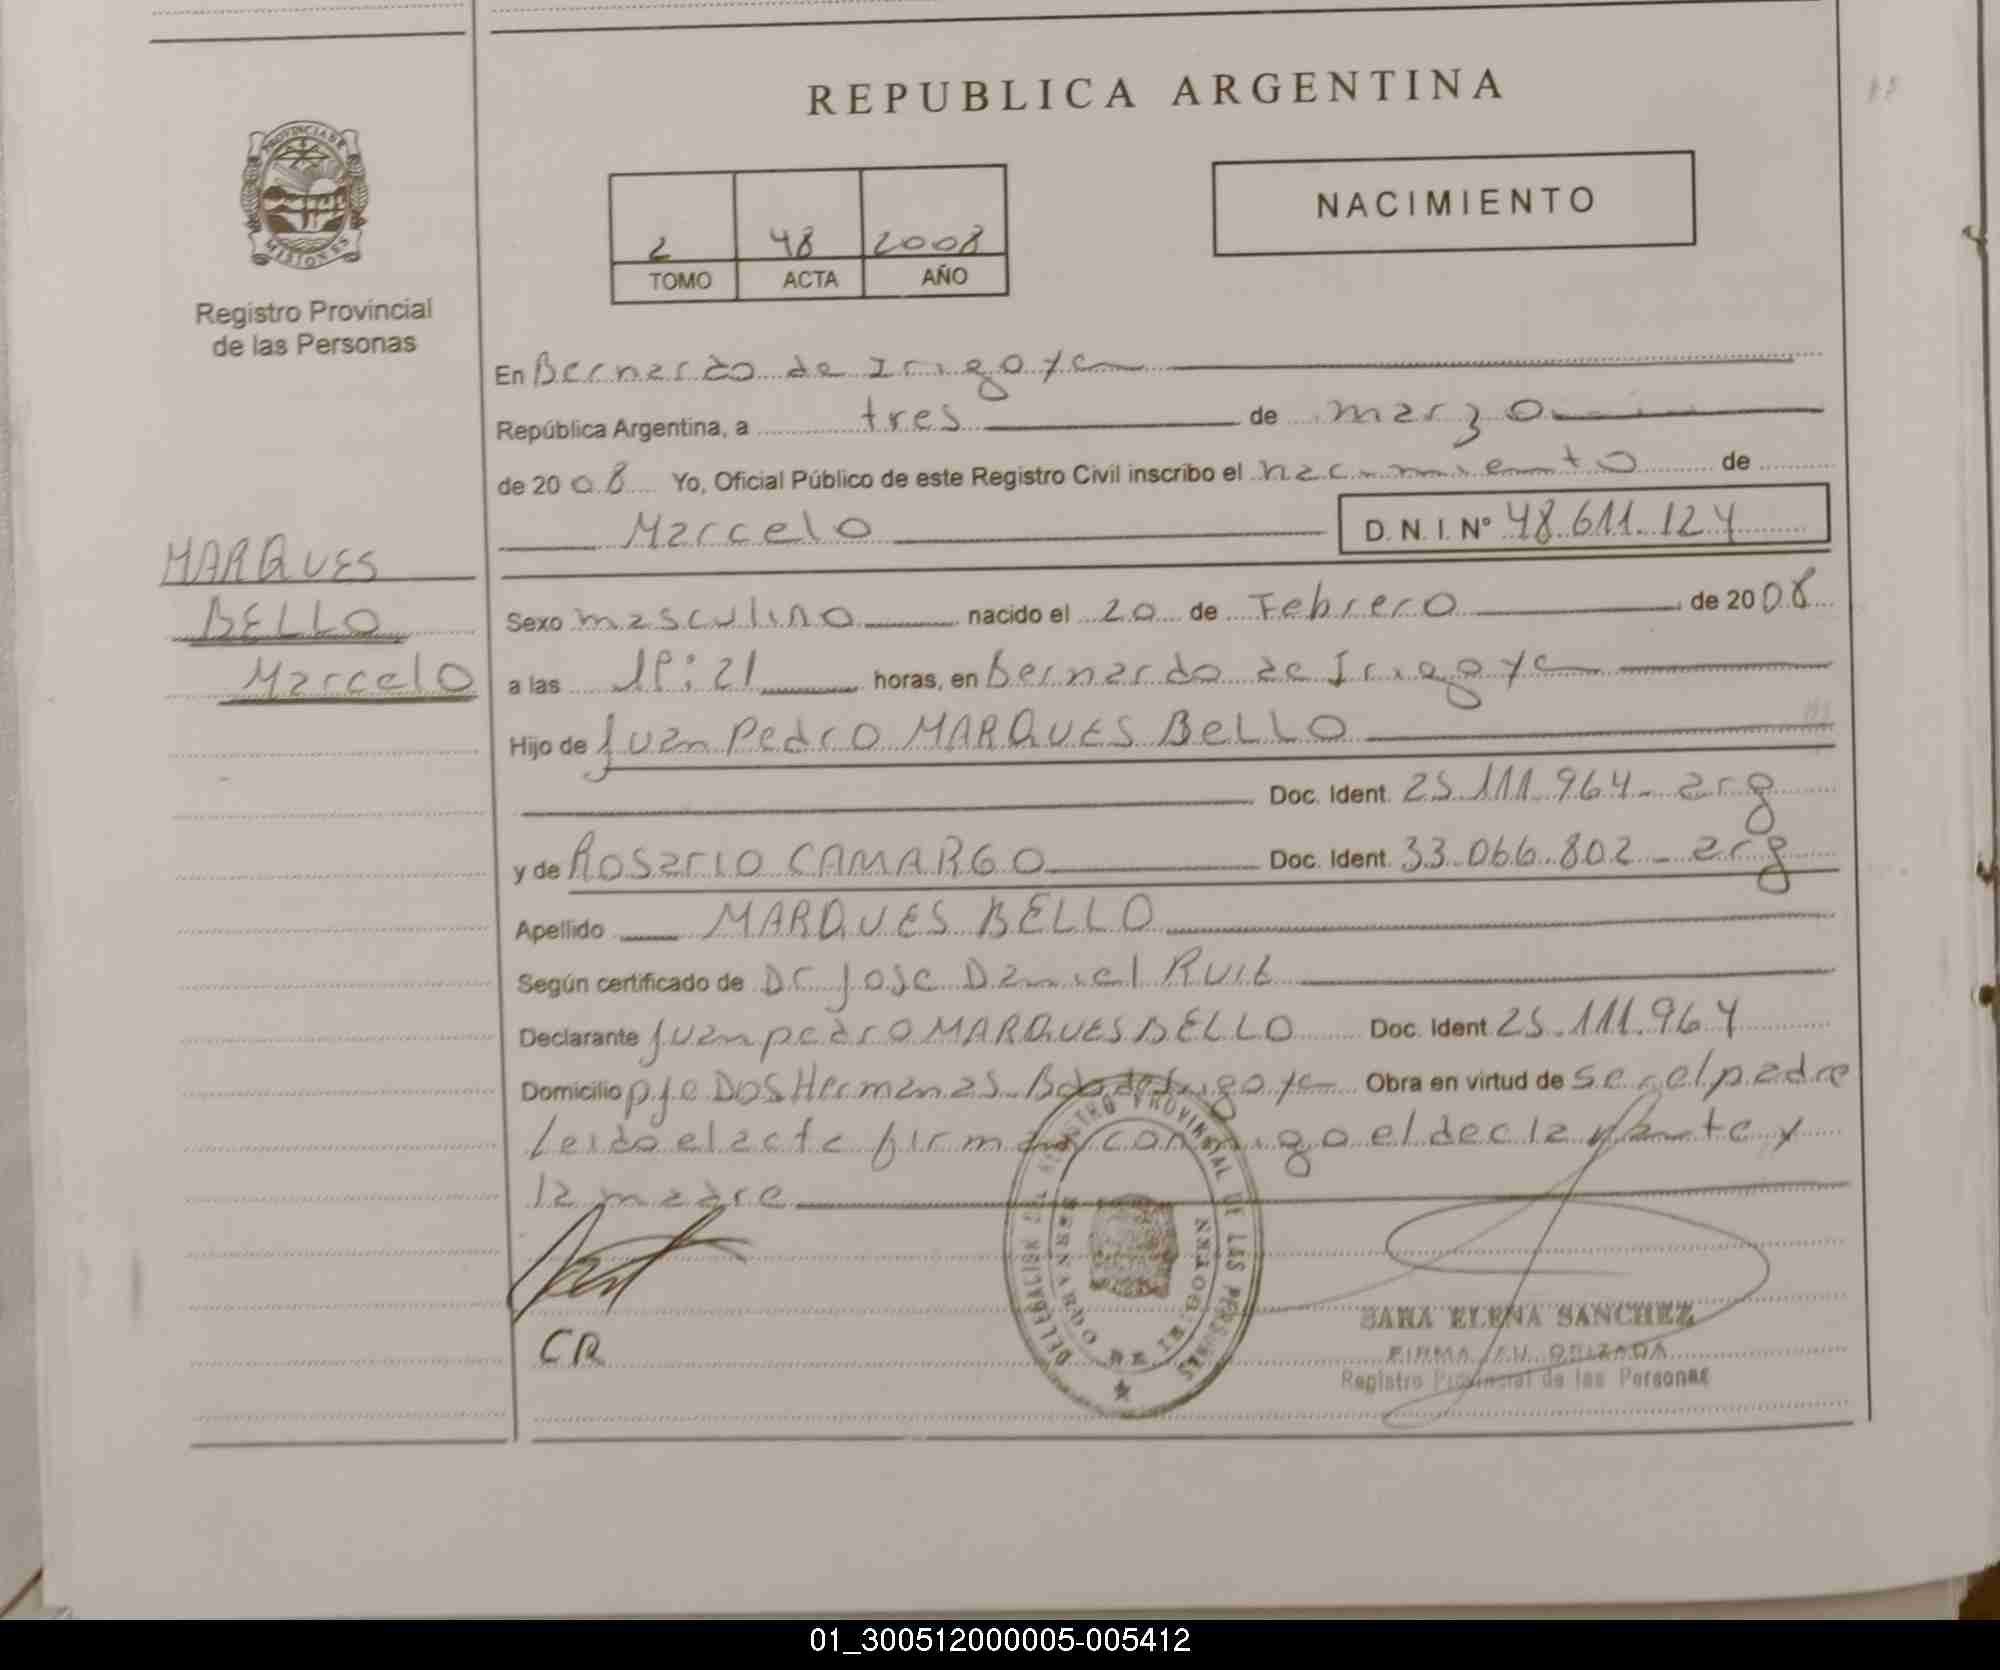 REPUBLICA ARGENTINA
PROVINCIA DE
MISIONES
Registro Provincial
de las Personas
NACIMIENTO
2 48 2008
TOMO ACTA AÑO
En Bernardo de Irigoyen
República Argentina, a tres de marzo
de 2008 Yo, Oficial Público de este Registro Civil inscribo el nacimiento de
Marcelo D.N.I. Nº 48.611.124
MARQUES
BELLO
Marcelo
Sexo masculino nacido el 20 de Febrero de 2008
a las :21 horas, en Bernardo de Irigoyen
Hijo de Juan Pedro MARQUES BELLO
Doc. Ident. 25.111.964 - arg
y de Rosario CAMARGO Doc. Ident. 33.066.802 - arg
Apellido MARQUES BELLO
Según certificado de Dr Jose Daniel
Declarante Juan pedro MARQUES BELLO Doc. Ident 25.111.964
Domicilio pje Dos Hermanas Bdo de Irigoyen Obra en virtud de ser el padre
Leido el acta firman conmigo el declarante y
la madre
CR
REGISTRO PROVINCIAL DE LAS PERSONAS
DELEGACION
BERNARDO DE IRIGOYEN
SARA ELENA SANCHEZ
FIRMA AUTORIZADA
Registro Provincial de las Personas
01_300512000005-005412